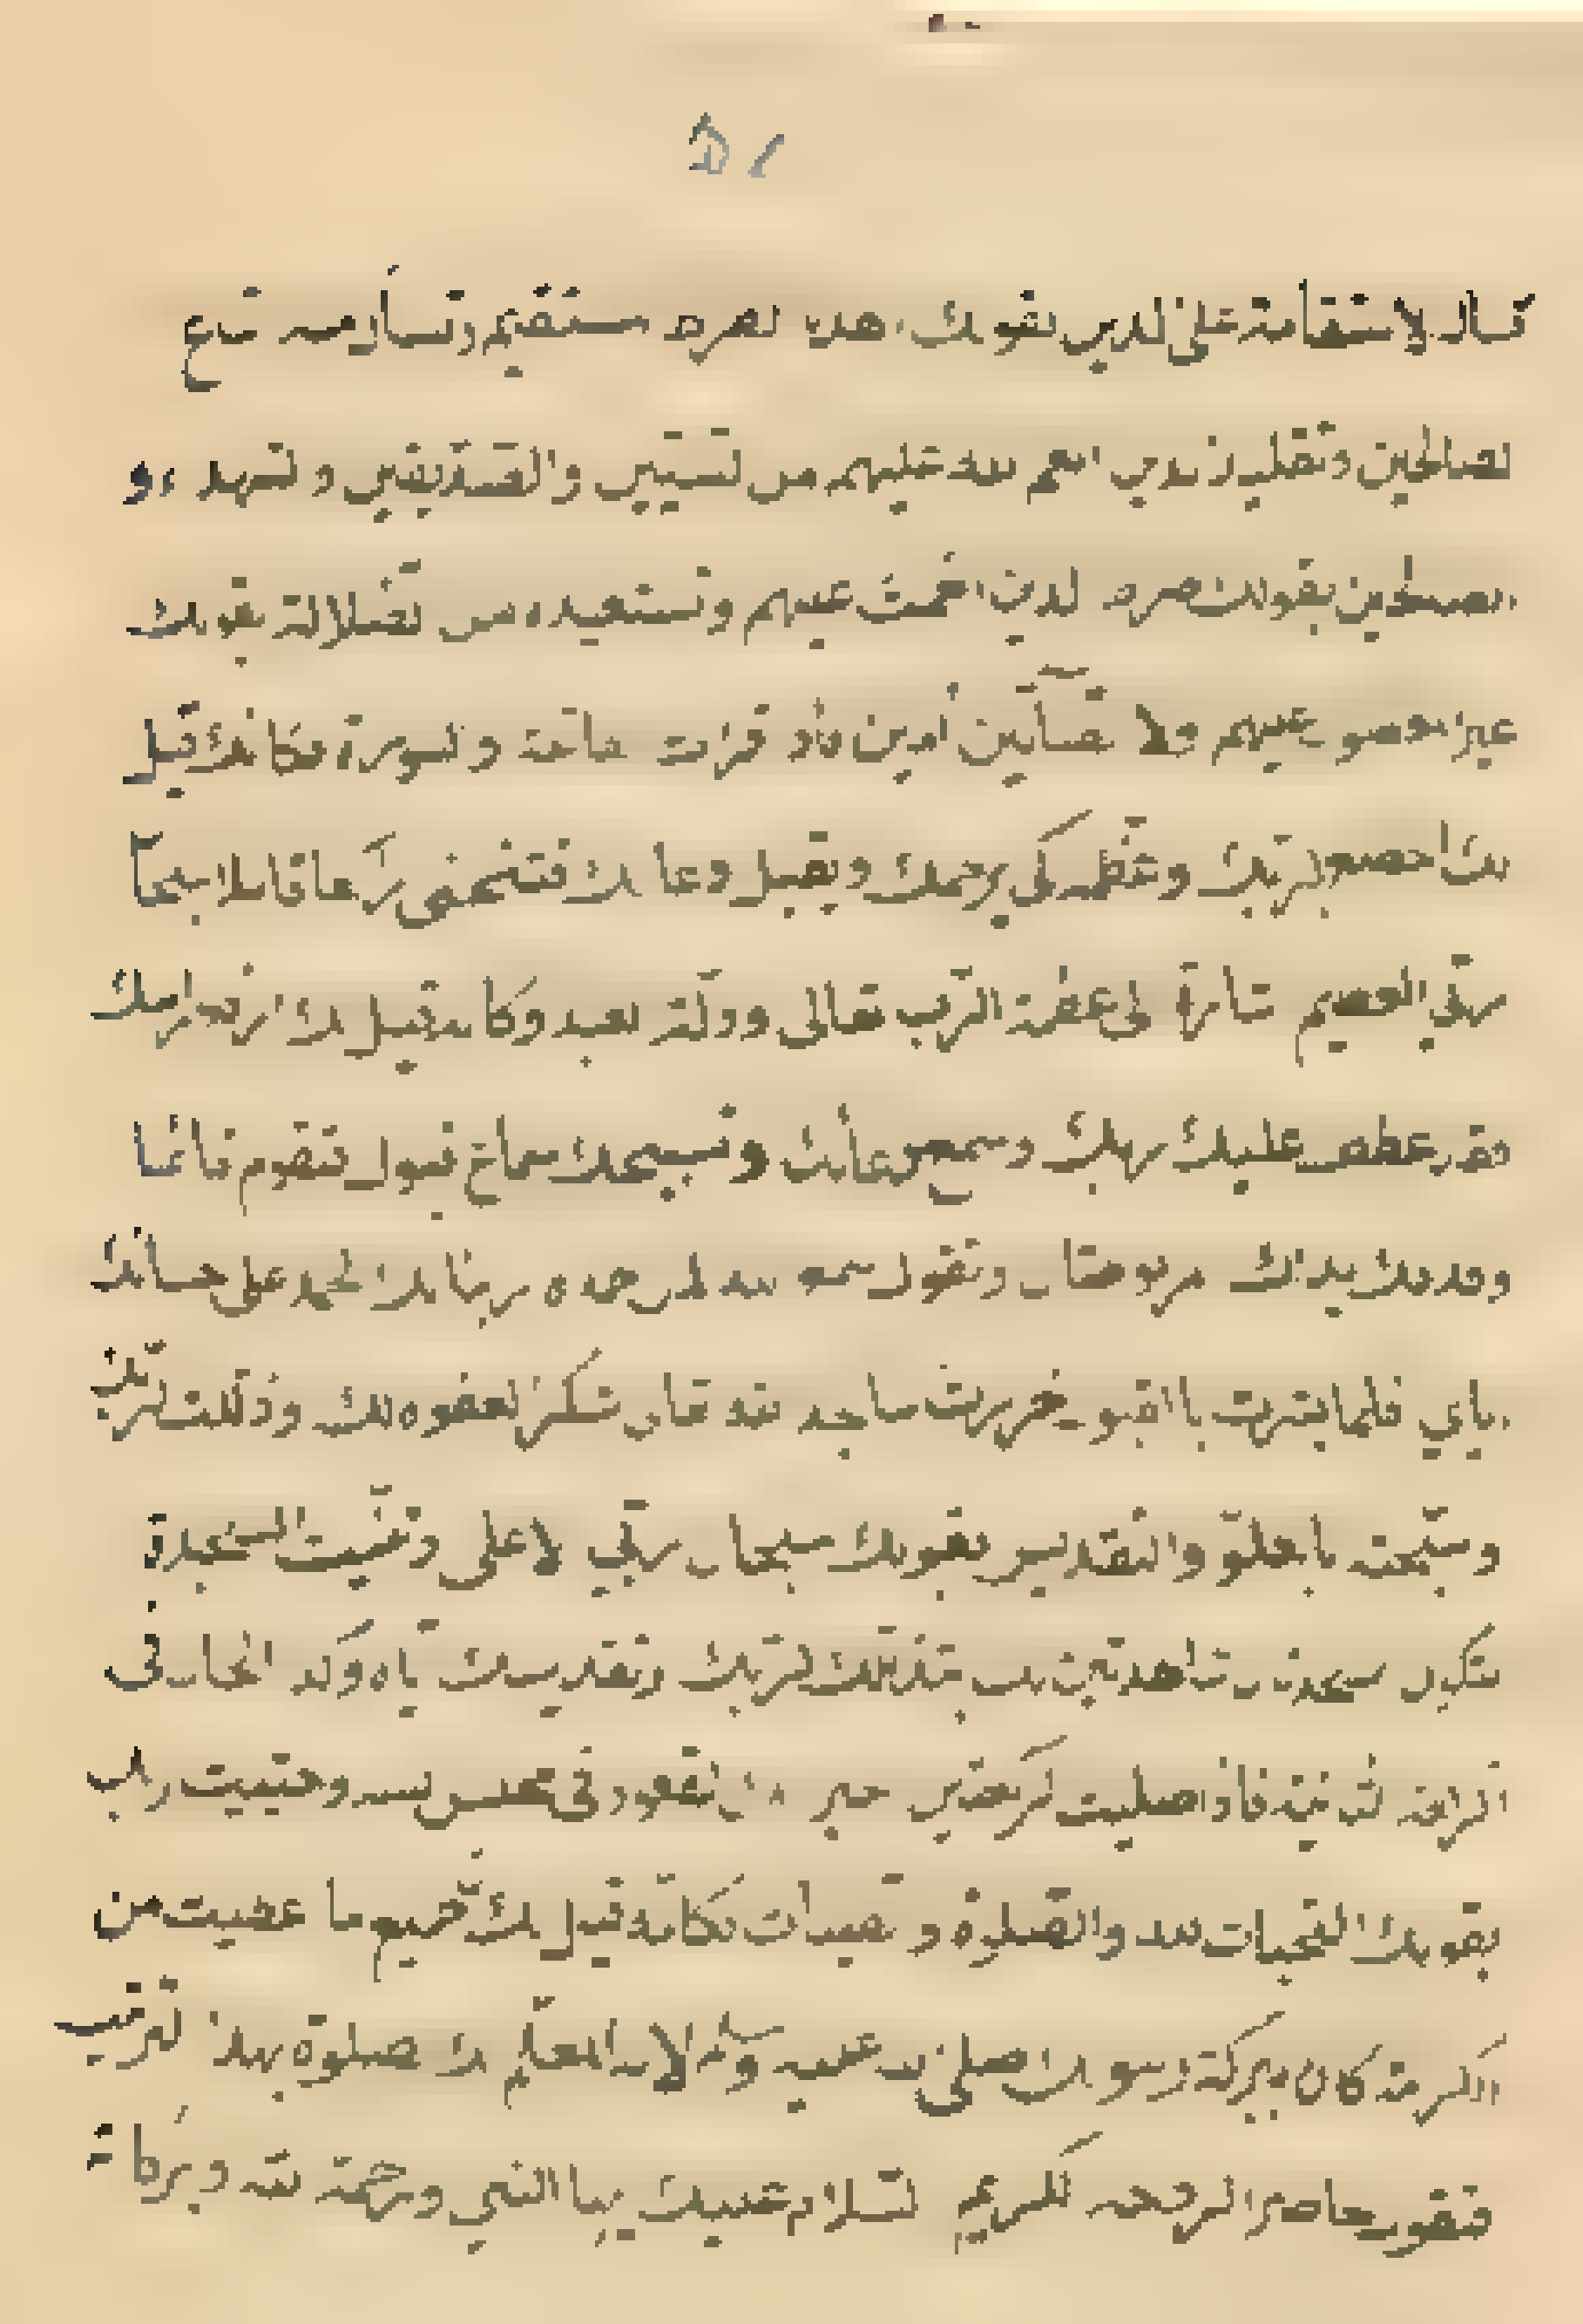 ٥١
كمال الاستقامة على الدين بقولك اهدنا الصراط المستقيم وتسأل منه اتباع
الصالحين وتقليد الذين انعم الله عليهم من النبيين والصديقين والشهداء و
الصالحين بقولك صراط الذين انعمت عليهم وتستعيذه من الضلالة بقولك
غير المغضوب عليهم ولا الضآلين آمين فاذا قرات الفاتحة والسورة فكانك قيل
لك اخضع لربك وعظمه كي يرحمك ويقبل دعائك فتنحني راكعا قائلا سبحان
ربي العظيم اشارة الى عظمة الرب تعالى وذلة العبد وكانه قيل لك ارفع راسك
فقد عطف عليك ربك وسمع دعائك وتسبيحك سماع قبول فتقوم قائما
وقد يديك وتقول سمع الله لمن حمده ربنا لك الحمد على احسانك
اياي فلما بشرت بالقبول خررت ساجدا لله تعالى شكرا لعفوه لك وذللت لربك
وسبحته بالعلو والتقديس بقولك سبحان ربي الاعلى وثنيت السجدة
لتكون السجدتان شاهدتين لك بتذللك لربك وتقديسك اياه وكذا الحال في
الركعة الثانية فاذا صليت الركعتين القعود في مجلس انسه وحييت ربك
بقولك التحيات لله والصلوة والطيبات فكانه قيل لك تحريم ما اعطيت من
الكرامة كان ببركة رسولك صلى الله عليه وآله لانه المعلم لك الصلوة بهذا الترتيب
فتقول حاضرا لروحه الكريم السلام عليك ايها النبي ورحمة الله وبركاته